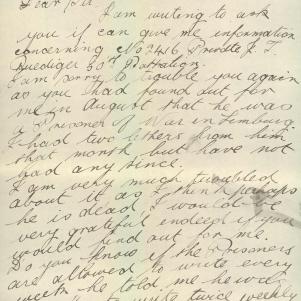 Dear Sir
I am writing to ask
you if can give me information
concerning No 2416 Private F. T.
Ruediger 30th Battalion.
I am sorry to trouble you again
as you had found out for
me in August that he was
a Prisoner of War in Limburg
I had two letters from him
that month but have not
had any since.
I am very much troubled
about it as I think perhaps
he is dead, I would be
very grateful indeed if you
would find out for me.
Do you know if the Prisoners
are allowed to write every
week he told me he would
write twice weekly